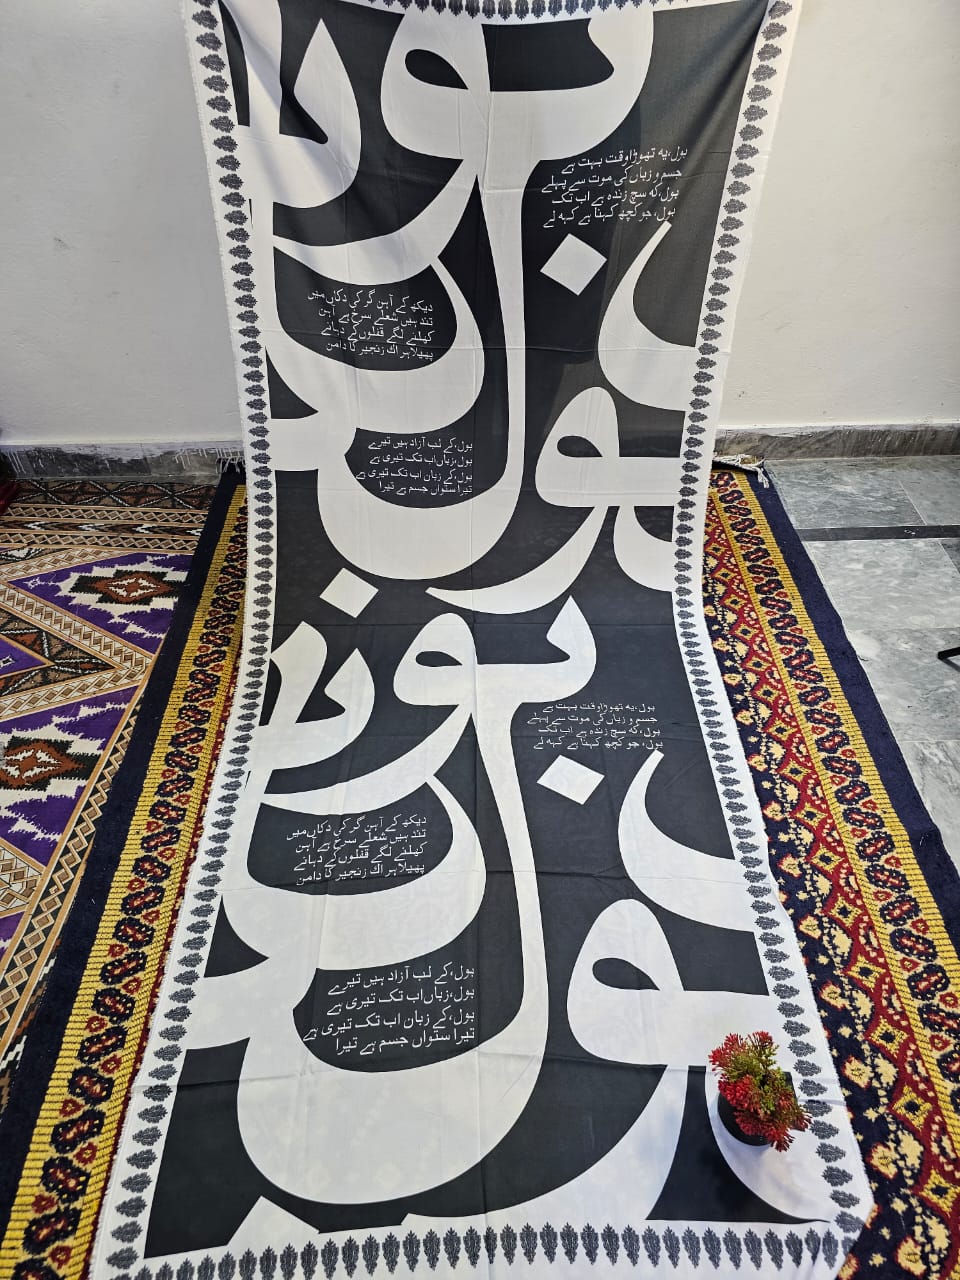 بول،یہ تھوڑا وقت بہت ہے
جسم و زباں کی موت سے پہلے
بول،کہ سچ زندہ ہے اب تک
بول، جو کچھ کہنا ہے کہہ لے
دیکھ کے آہن گر کی دکاں میں
تند ہیں شعلے سرخ ہے آہن
کھلنے لگے قفلوں کے دہانے
پھیلا ہر اک زنجیر کا دامن
بول،کے لب آزاد ہیں تیرے
بول،زباں اب تک تیری ہے
بول،کے زبان اب تک تیری ہے
تیرا ستواں جسم ہے تیرا
بول
بول،یہ تھوڑا وقت بہت ہے
جسم و زباں کی موت سے پہلے
بول،کہ سچ زندہ ہے اب تک
بول، جو کچھ کہنا ہے کہہ لے
دیکھ کے آہن گر کی دکاں میں
تند ہیں شعلے سرخ ہے آہن
کھلنے لگے قفلوں کے دہانے
پھیلا ہر اک زنجیر کا دامن
بول،کے لب آزاد ہیں تیرے
بول،زباں اب تک تیری ہے
بول،کے زبان اب تک تیری ہے
تیرا ستواں جسم ہے تیرا